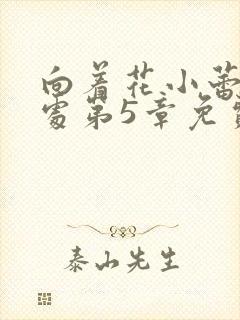 向着花小蕾
处第5章免费
泰山先生